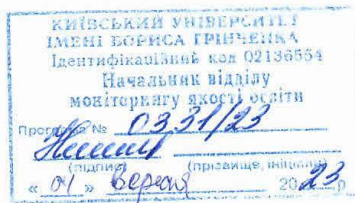 КИЇВСЬКИЙ УНІВЕРСИТЕТ
ІМЕНІ БОРИСА ГРІНЧЕНКА
Ідентифікаційний код 02136554
Начальник відділу
моніторингу якості освіти
Програма № 0331/23
(підпис) (прізвище, ініціали)
« 01 » вересня 2023 р.